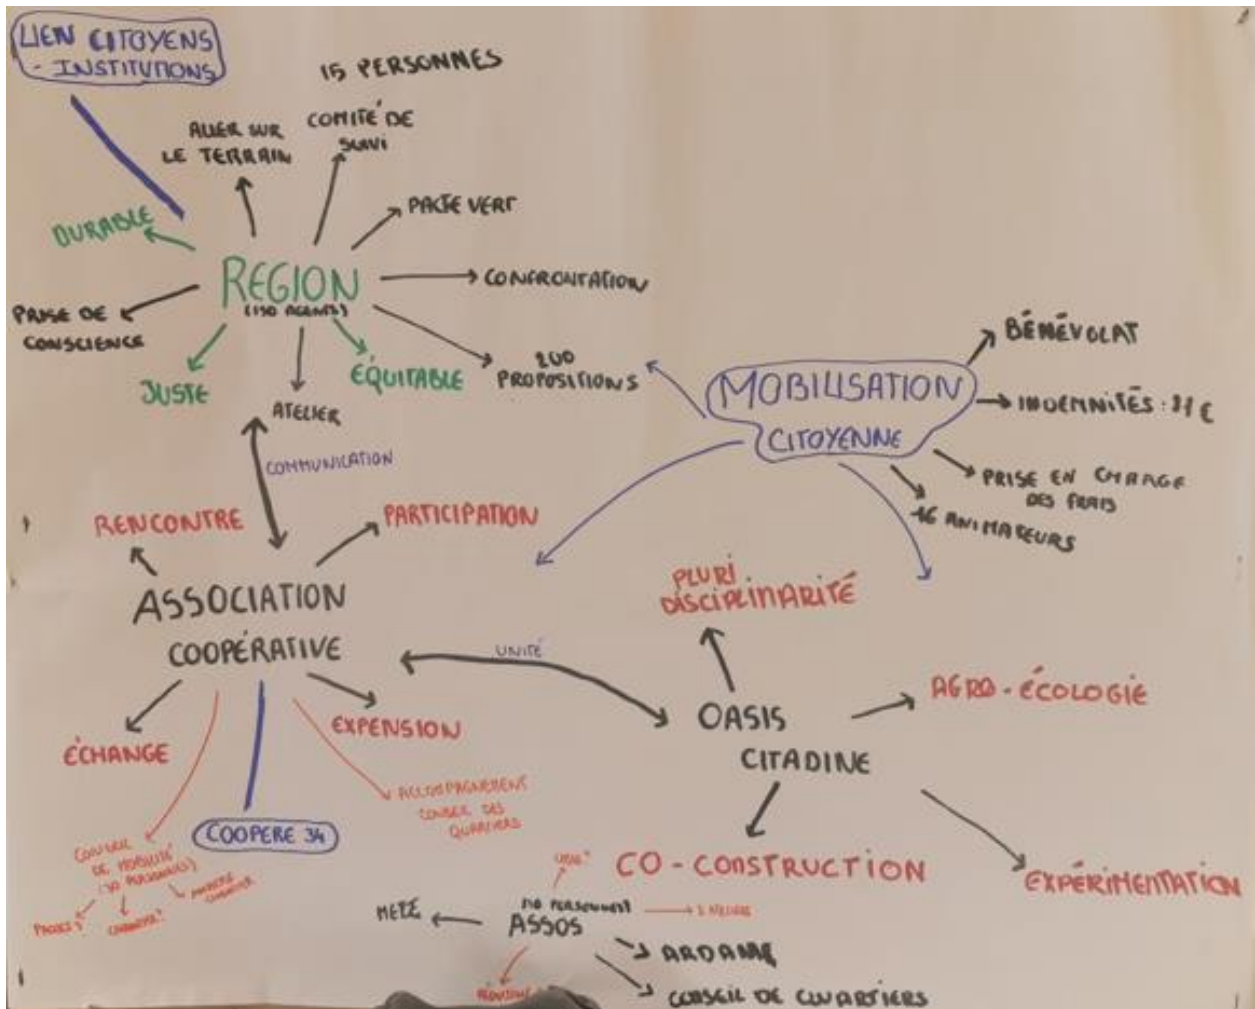 LIEN CITOYENS
- INSTITUTIONS
15 PERSONNES
ALLER SUR
LE TERRAIN
COMITÉ DE
SUIVI
PACTE VERT
DURABLE
REGION
(150 AGENTS)
CONFRONTATION
PRISE DE
CONSCIENCE
JUSTE
ÉQUITABLE
200
PROPOSITIONS
ATELIER
COMMUNICATION
MOBILISATION
CITOYENNE
BÉNÉVOLAT
INDEMNITÉS :
PRISE EN CHARGE
DES FRAIS
16 ANIMATEURS
RENCONTRE
PARTICIPATION
ASSOCIATION
COOPÉRATIVE
UNITÉ
PLURI
DISCIPLINARITÉ
OASIS
CITADINE
AGRO-ÉCOLOGIE
ÉCHANGE
EXPENSION
ACCOMPAGNEMENT
CONSEIL DES
QUARTIERS
COOPERE 34
CONSEIL
DE MOBILITÉ
PERSONNES)
CO-CONSTRUCTION
EXPÉRIMENTATION
PERSONNES
ASSOS
ARDAM
CONSEIL DE QUARTIERS